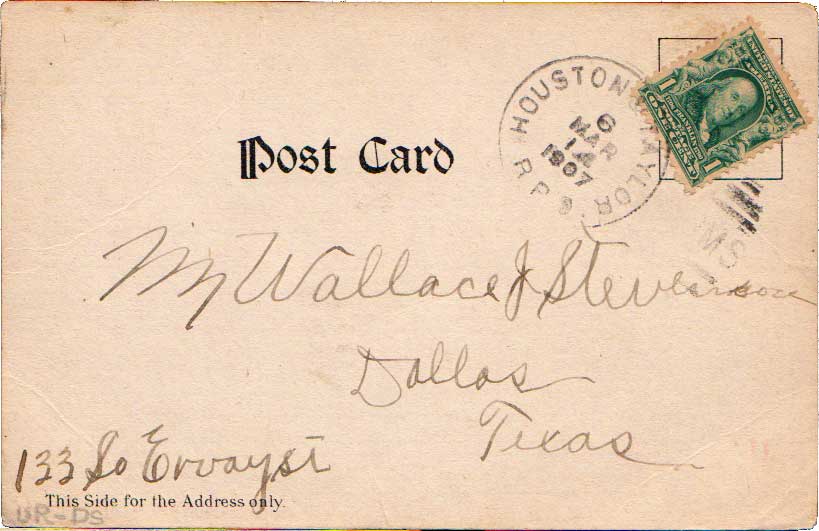 Post Card
HOUSTON & TAYLOR
6
MAR
14
1907
R.P.O.
1
ONE CENT
MS
Mr Wallace J Stevenson
Dallas
Texas
133 So Ervay st
This Side for the Address only.
UR-DS